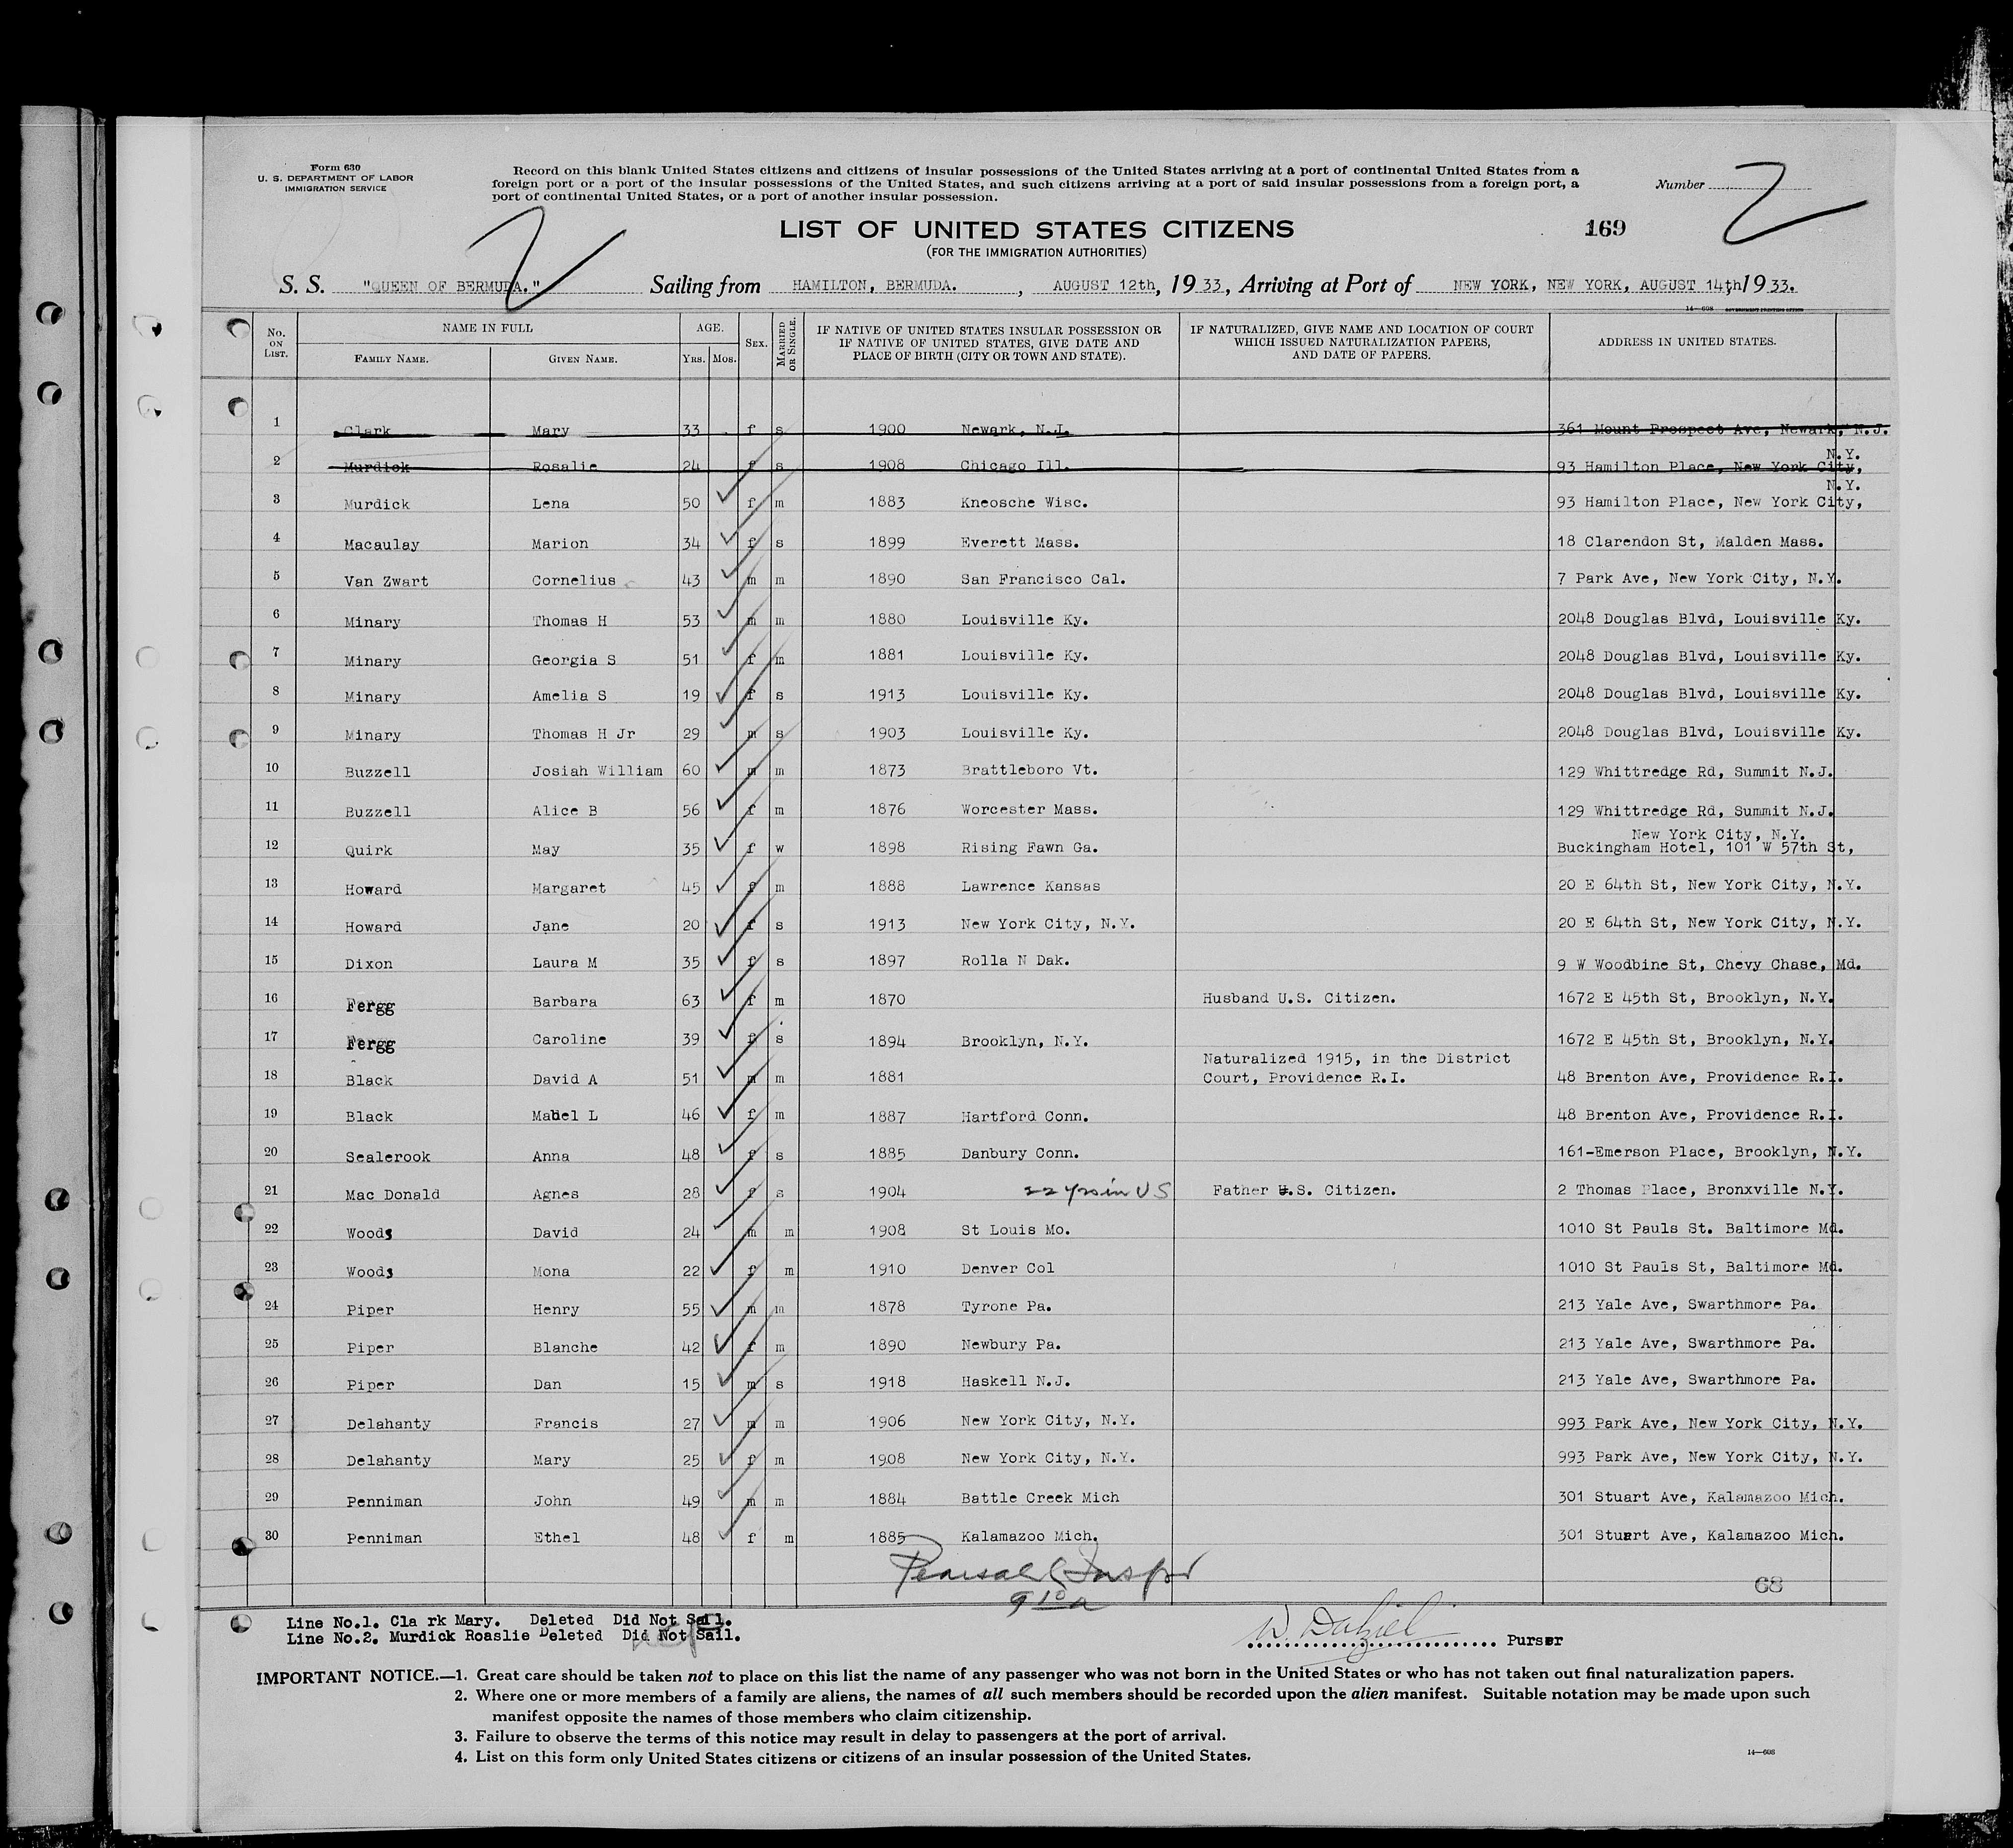 Form 630
U. S. DEPARTMENT OF LABOR
IMMIGRATION SERVICE
Record on this blank United States citizens and citizens of insular possessions of the United States arriving at a port of continental United States from a
foreign port or a port of the insular possessions of the United States, and such citizens arriving at a port of said insular possessions from a foreign port, a
port of continental United States, or a port of another insular possession.
Number 2
2
LIST OF UNITED STATES CITIZENS
169
(FOR THE IMMIGRATION AUTHORITIES)
S. S. "QUEEN OF BERMUDA." Sailing from HAMILTON, BERMUDA. , AUGUST 12th, 1933, Arriving at Port of NEW YORK, NEW YORK, AUGUST 14th, 1933.
14—608 GOVERNMENT PRINTING OFFICE
No. ON LIST. NAME IN FULL FAMILY NAME. GIVEN NAME. AGE. YRS. MOS. SEX. MARRIED OR SINGLE. IF NATIVE OF UNITED STATES INSULAR POSSESSION OR IF NATIVE OF UNITED STATES, GIVE DATE AND PLACE OF BIRTH (CITY OR TOWN AND STATE). IF NATURALIZED, GIVE NAME AND LOCATION OF COURT WHICH ISSUED NATURALIZATION PAPERS, AND DATE OF PAPERS. ADDRESS IN UNITED STATES.
1 Clark Mary 33 f s 1900 Newark, N.J. 361 Mount Prospect Ave, Newark, N.J.
2 Murdick Rosalie 24 f s 1908 Chicago Ill. 93 Hamilton Place, New York City, N.Y.
3 Murdick Lena 50 f m 1883 Kneosche Wisc. 93 Hamilton Place, New York City, N.Y.
4 Macaulay Marion 34 f s 1899 Everett Mass. 18 Clarendon St, Malden Mass.
5 Van Zwart Cornelius 43 m m 1890 San Francisco Cal. 7 Park Ave, New York City, N.Y.
6 Minary Thomas H 53 m m 1880 Louisville Ky. 2048 Douglas Blvd, Louisville Ky.
7 Minary Georgia S 51 f m 1881 Louisville Ky. 2048 Douglas Blvd, Louisville Ky.
8 Minary Amelia S 19 f s 1913 Louisville Ky. 2048 Douglas Blvd, Louisville Ky.
9 Minary Thomas H Jr 29 m s 1903 Louisville Ky. 2048 Douglas Blvd, Louisville Ky.
10 Buzzell Josiah William 60 m m 1873 Brattleboro Vt. 129 Whittredge Rd, Summit N.J.
11 Buzzell Alice B 56 f m 1876 Worcester Mass. 129 Whittredge Rd, Summit N.J.
12 Quirk May 35 f w 1898 Rising Fawn Ga. Buckingham Hotel, 101 W 57th St, New York City, N.Y.
13 Howard Margaret 45 f m 1888 Lawrence Kansas 20 E 64th St, New York City, N.Y.
14 Howard Jane 20 f s 1913 New York City, N.Y. 20 E 64th St, New York City, N.Y.
15 Dixon Laura M 35 f s 1897 Rolla N Dak. 9 W Woodbine St, Chevy Chase, Md.
16 Fergg Barbara 63 f m 1870 Husband U.S. Citizen. 1672 E 45th St, Brooklyn, N.Y.
17 Fergg Caroline 39 f s 1894 Brooklyn, N.Y. 1672 E 45th St, Brooklyn, N.Y.
18 Black David A 51 m m 1881 Naturalized 1915, in the District Court, Providence R.I. 48 Brenton Ave, Providence R.I.
19 Black Mabel L 46 f m 1887 Hartford Conn. 48 Brenton Ave, Providence R.I.
20 Sealerook Anna 48 f s 1885 Danbury Conn. 161-Emerson Place, Brooklyn, N.Y.
21 Mac Donald Agnes 28 f s 1904 22 yrs in US Father U.S. Citizen. 2 Thomas Place, Bronxville N.Y.
22 Woods David 24 m m 1908 St Louis Mo. 1010 St Pauls St. Baltimore Md.
23 Woods Mona 22 f m 1910 Denver Col 1010 St Pauls St, Baltimore Md.
24 Piper Henry 55 m m 1878 Tyrone Pa. 213 Yale Ave, Swarthmore Pa.
25 Piper Blanche 42 f m 1890 Newbury Pa. 213 Yale Ave, Swarthmore Pa.
26 Piper Dan 15 m s 1918 Haskell N.J. 213 Yale Ave, Swarthmore Pa.
27 Delahanty Francis 27 m m 1906 New York City, N.Y. 993 Park Ave, New York City, N.Y.
28 Delahanty Mary 25 f m 1908 New York City, N.Y. 993 Park Ave, New York City, N.Y.
29 Penniman John 49 m m 1884 Battle Creek Mich 301 Stuart Ave, Kalamazoo Mich.
30 Penniman Ethel 48 f m 1885 Kalamazoo Mich. 301 Stuart Ave, Kalamazoo Mich.
Pearsall Inspr
9 10 a
68
Line No.1. Cla rk Mary. Deleted Did Not Sail.
Line No.2. Murdick Roaslie Deleted Did Not Sail.
W. Dalziel Purser
IMPORTANT NOTICE.—1. Great care should be taken not to place on this list the name of any passenger who was not born in the United States or who has not taken out final naturalization papers.
2. Where one or more members of a family are aliens, the names of all such members should be recorded upon the alien manifest. Suitable notation may be made upon such
manifest opposite the names of those members who claim citizenship.
3. Failure to observe the terms of this notice may result in delay to passengers at the port of arrival.
4. List on this form only United States citizens or citizens of an insular possession of the United States.
14—608